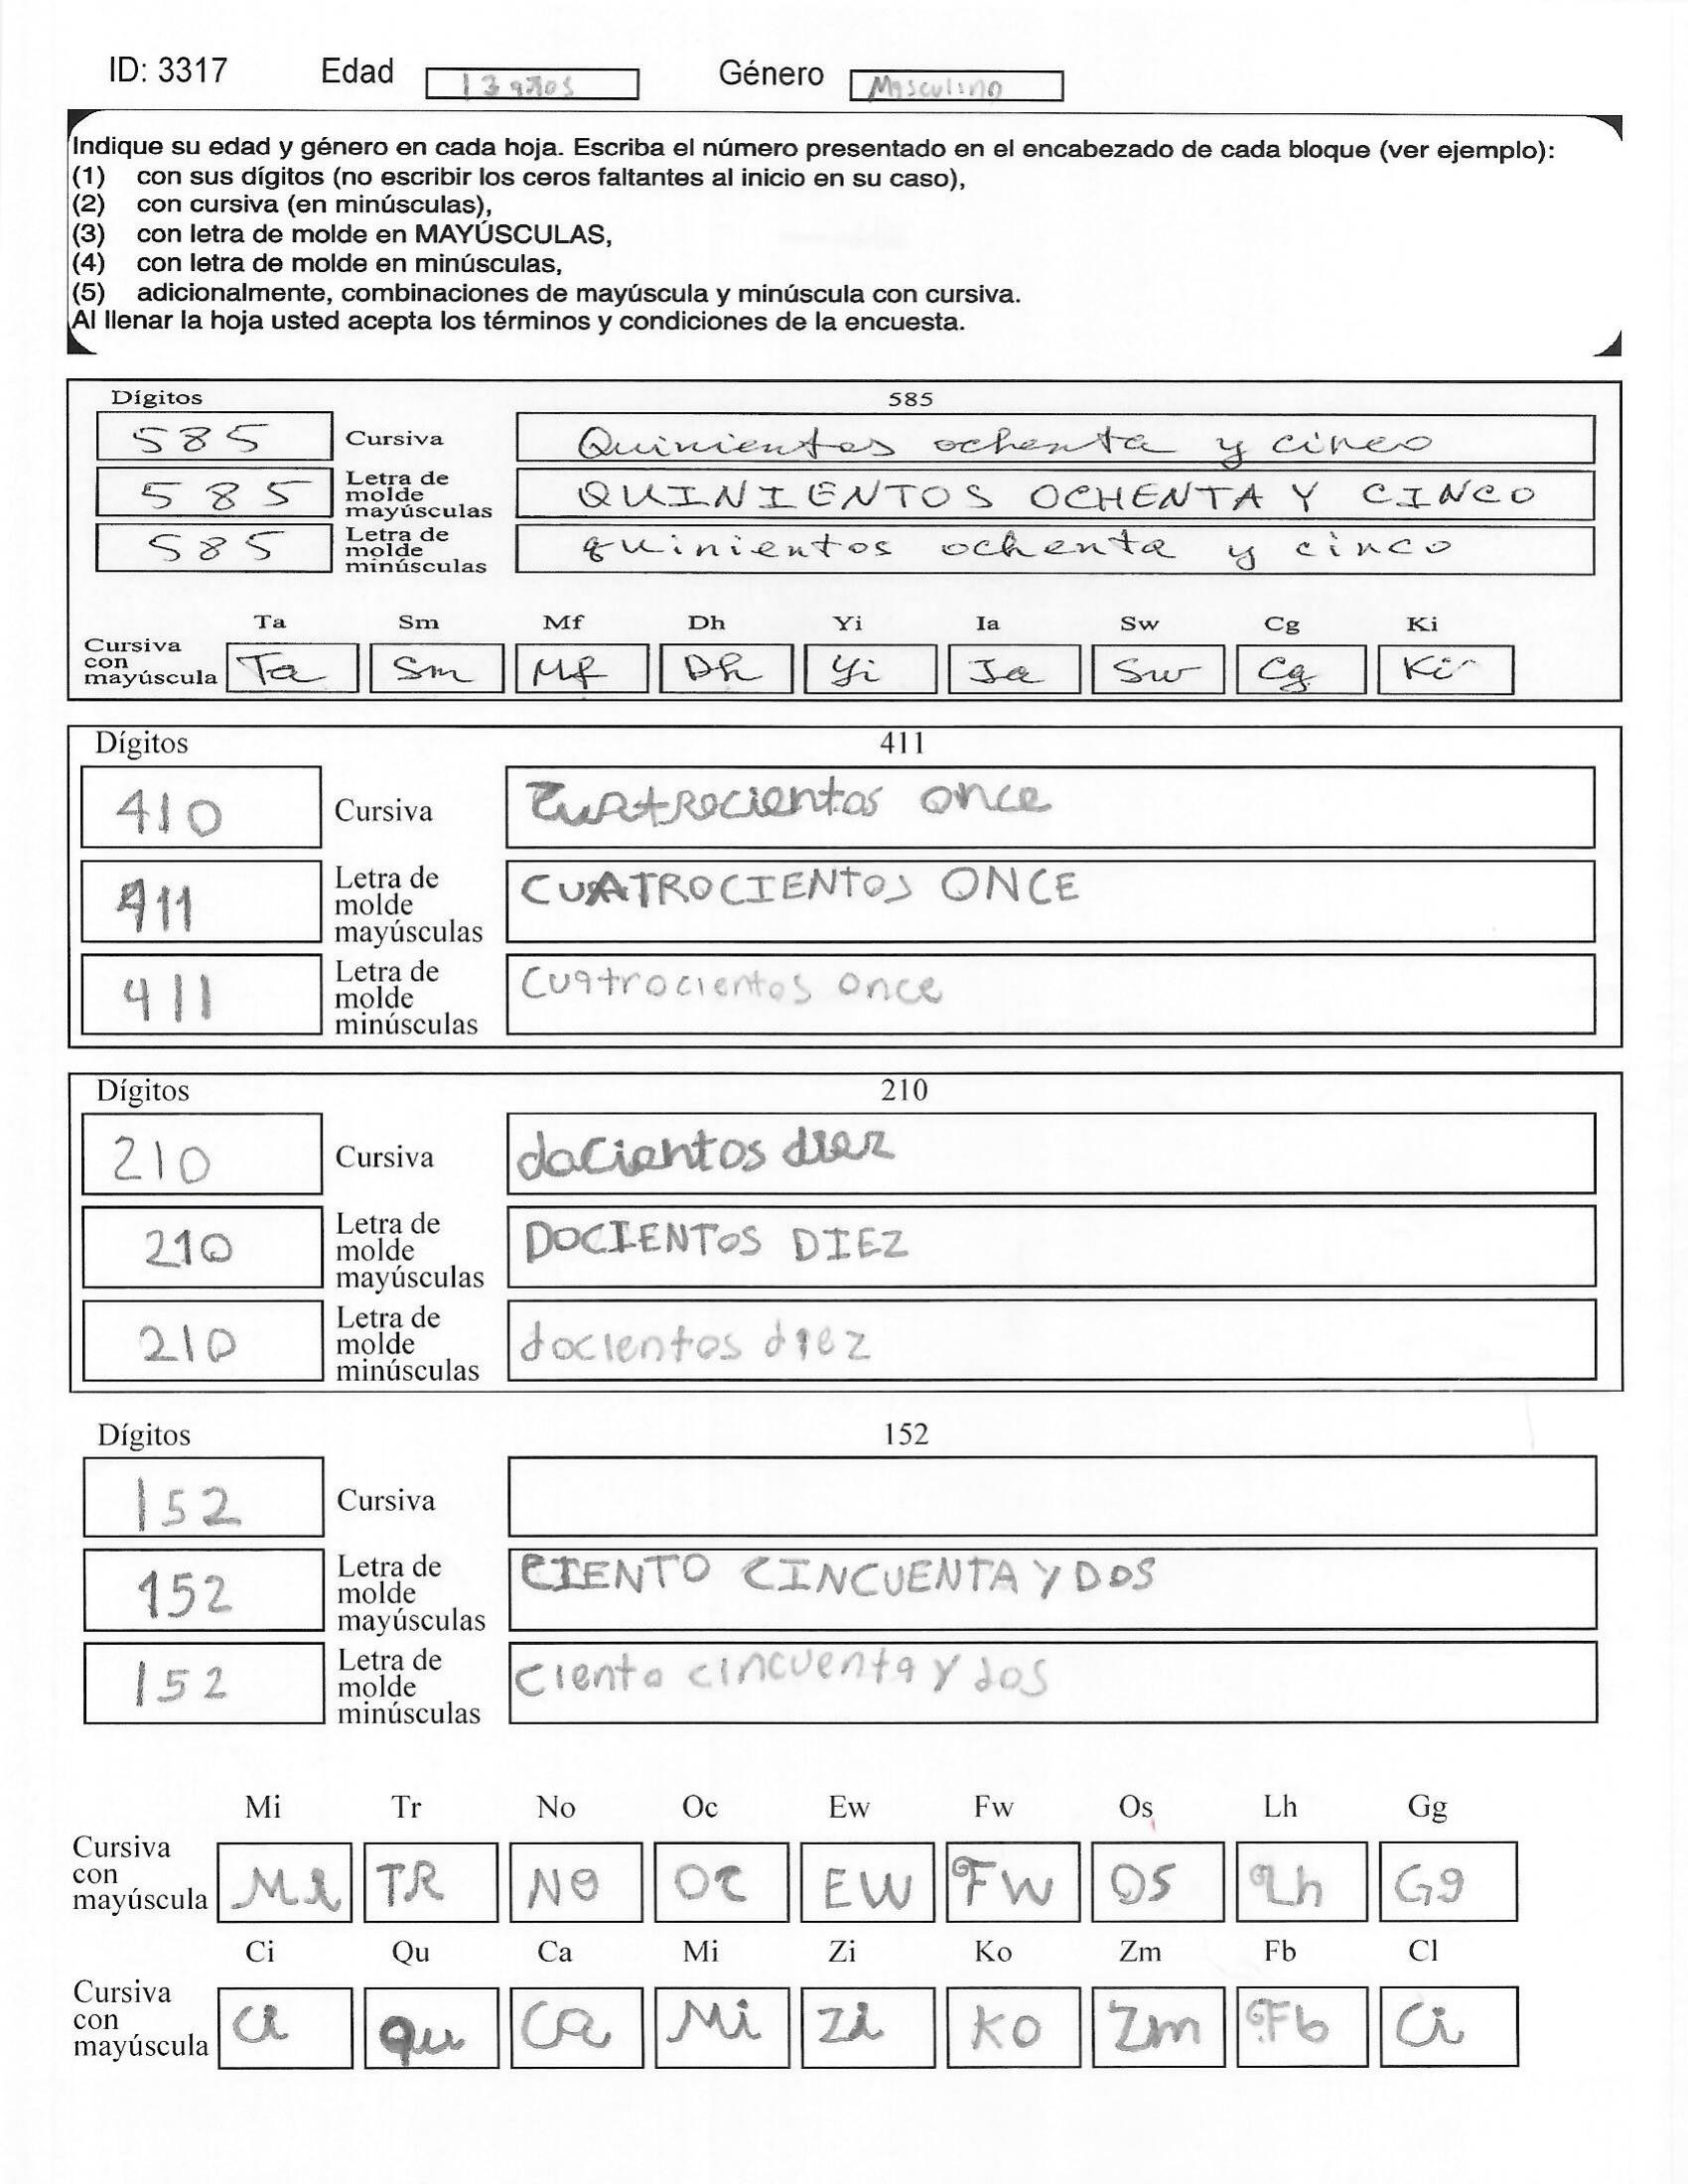 ID: 3317 Edad 13 años Género Masculino
Indique su edad y género en cada hoja. Escriba el número presentado en el encabezado de cada bloque (ver ejemplo):
(1) con sus dígitos (no escribir los ceros faltantes al inicio en su caso),
(2) con cursiva (en minúsculas),
(3) con letra de molde en MAYÚSCULAS,
(4) con letra de molde en minúsculas,
(5) adicionalmente, combinaciones de mayúscula y minúscula con cursiva.
Al llenar la hoja usted acepta los términos y condiciones de la encuesta.
Dígitos 585
585 Cursiva Quinientos ochenta y cinco
585 Letra de molde mayúsculas QUINIENTOS OCHENTA Y CINCO
585 Letra de molde minúsculas quinientos ochenta y cinco
Ta Sm Mf Dh Yi Ia Sw Cg Ki
Cursiva con mayúscula Ta Sm Mf Dh Yi Ia Sw Cg Ki
Dígitos 411
410 Cursiva Cuatrocientos once
411 Letra de molde mayúsculas CUATROCIENTOS ONCE
411 Letra de molde minúsculas Cuatrocientos once
Dígitos 210
210 Cursiva docientos diez
210 Letra de molde mayúsculas DOCIENTOS DIEZ
210 Letra de molde minúsculas docientos diez
Dígitos 152
152 Cursiva
152 Letra de molde mayúsculas CIENTO CINCUENTA Y DOS
152 Letra de molde minúsculas Ciento cincuenta y dos
Mi Tr No Oc Ew Fw Os Lh Gg
Cursiva con mayúscula Mi TR NO OC EW FW OS Lh Gg
Ci Qu Ca Mi Zi Ko Zm Fb Cl
Cursiva con mayúscula Ci qu Ca Mi Zi KO Zm Fb Ci